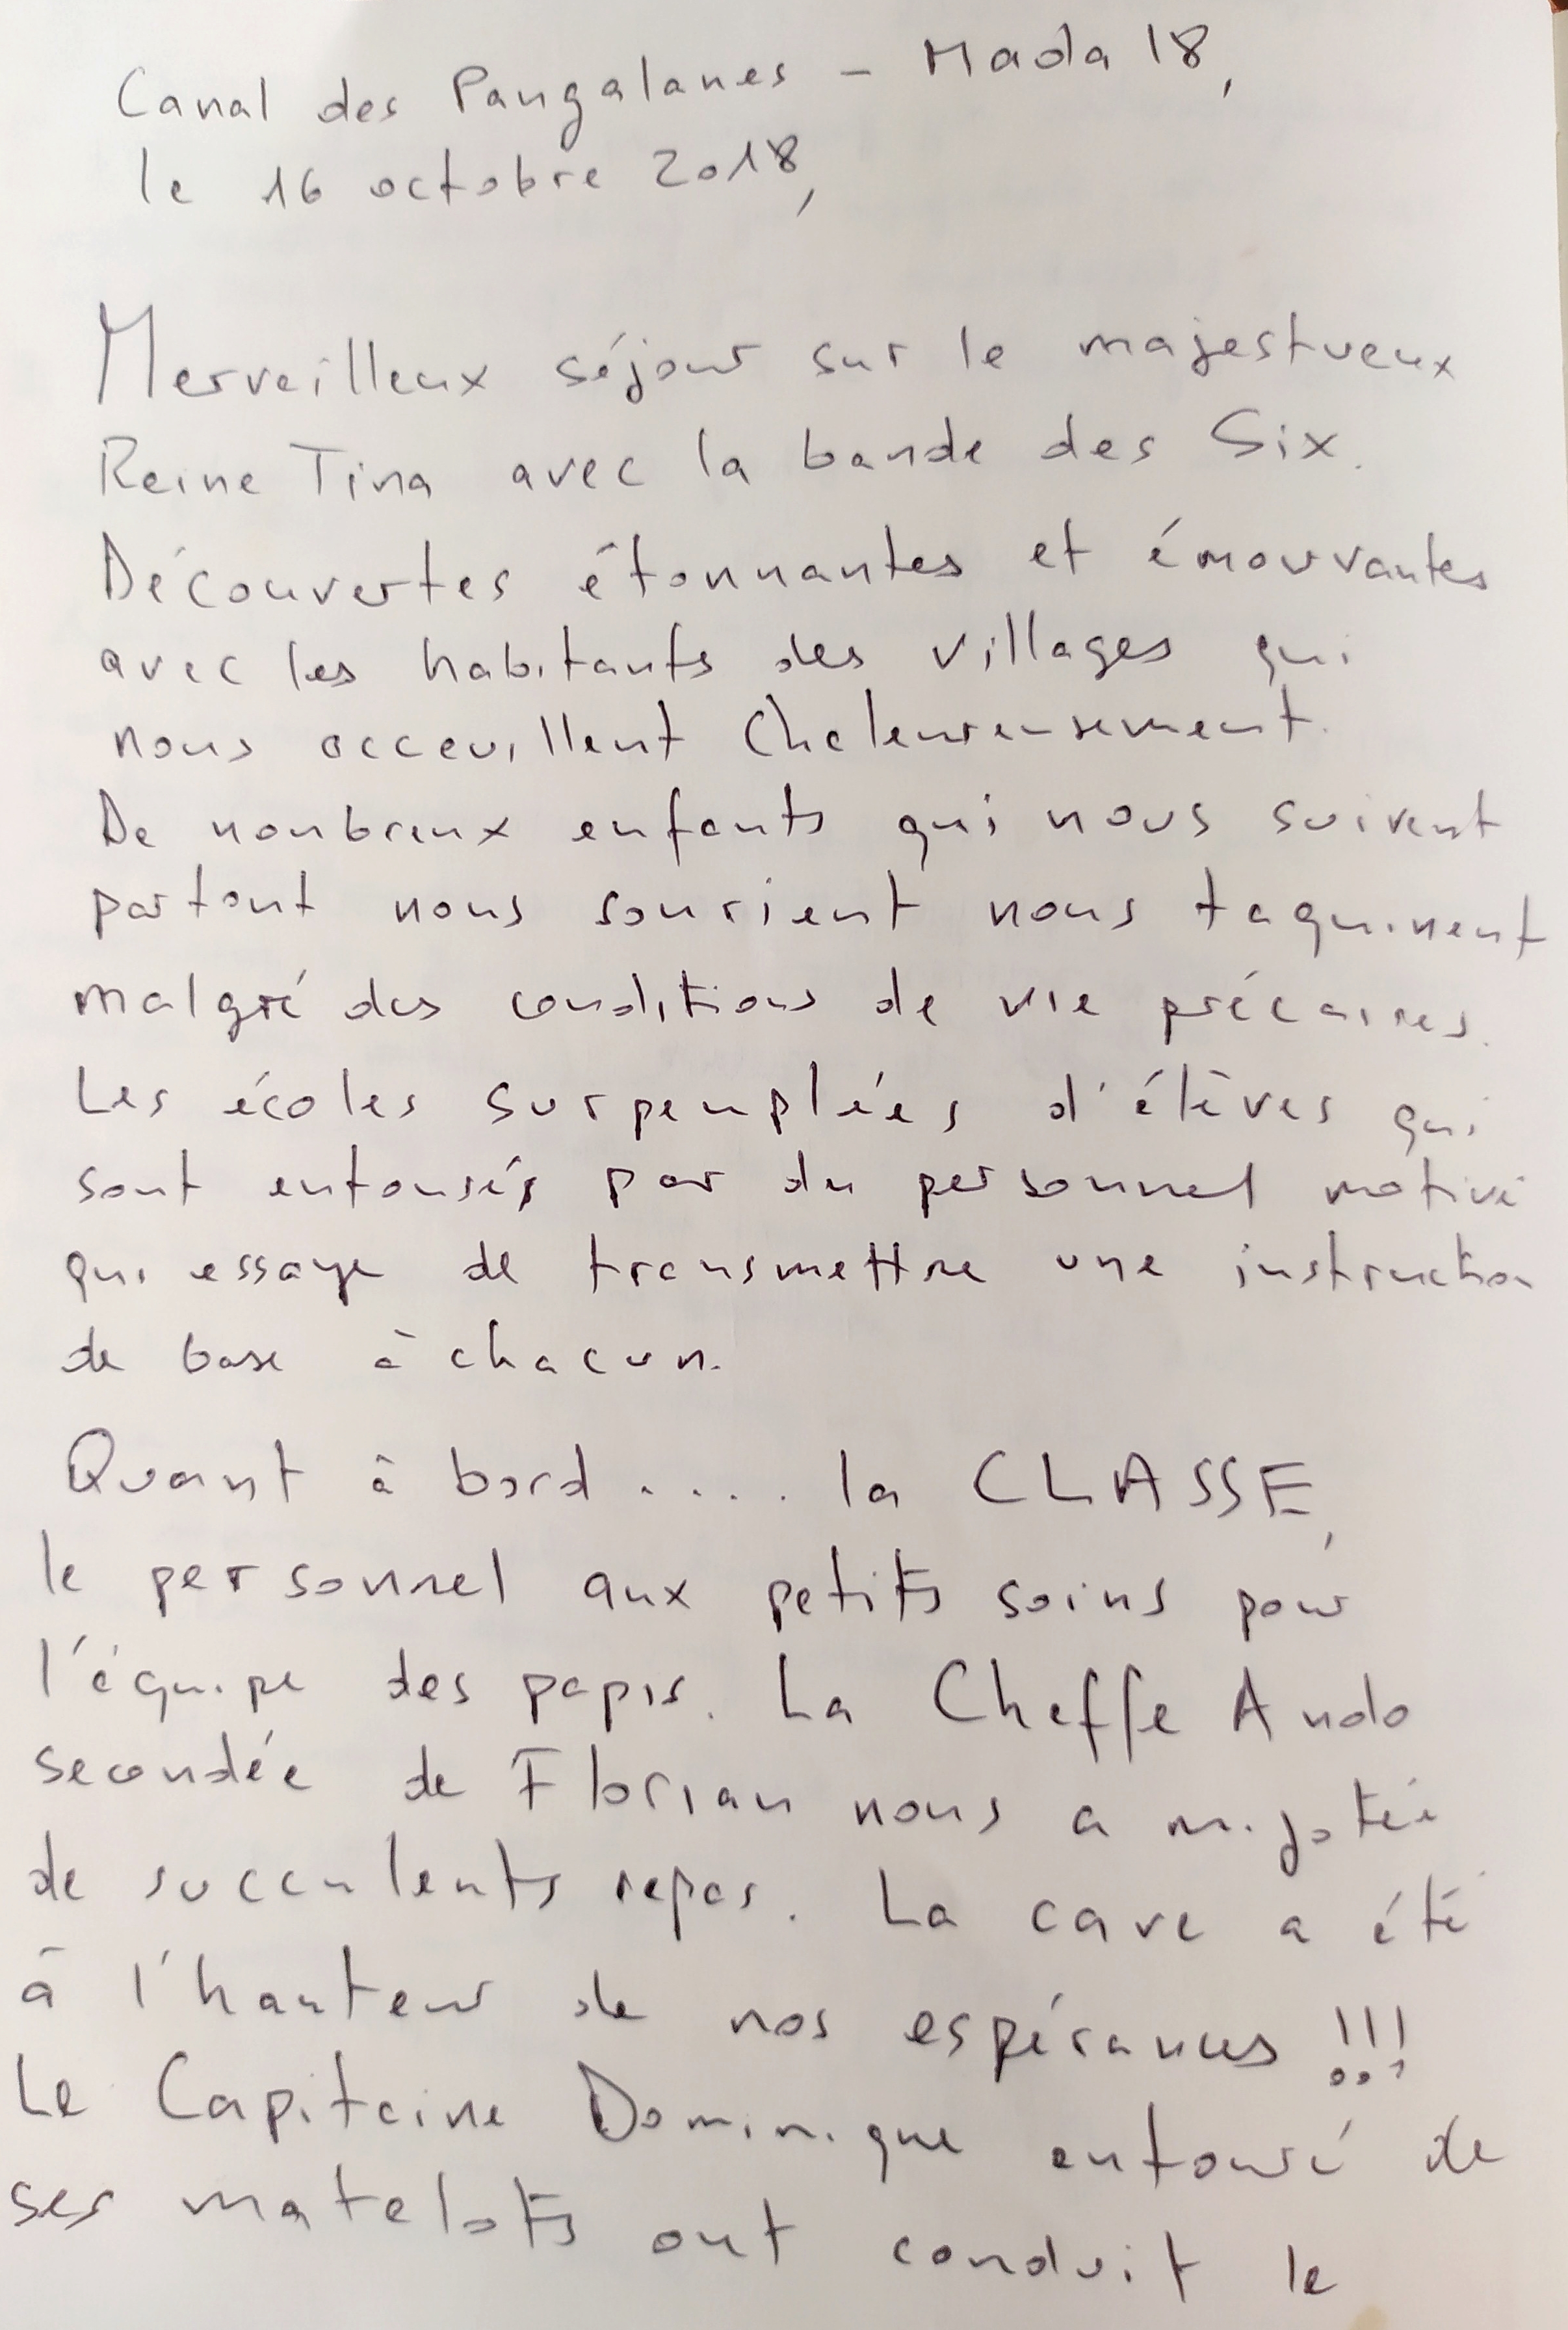 Canal des Pangalanes - Mada 18,
le 16 octobre 2018,
Merveilleux séjour sur le majestueux
Reine Tina avec la bande des Six.
Découvertes étonnantes et émouvantes
avec les habitants des villages qui
nous acceuillent chaleureusement.
De nonbreux enfants qui nous suivent
partout nous sourient nous taquinent
malgré des conditions de vie précaires.
Les écoles surpeuplées d'élèves qui
sont entourés par du personnel motivé
qui essaye de transmettre une instruction
de base à chacun.
Quant à bord .... la CLASSE,
le personnel aux petits soins pour
l'équipe des papis. La Cheffe Ando
secondée de Florian nous a mijoté
de succulents repas. La cave a été
à l'hauteur de nos espérances !!!
Le Capitaine Dominique entouré de
ses matelots ont conduit le